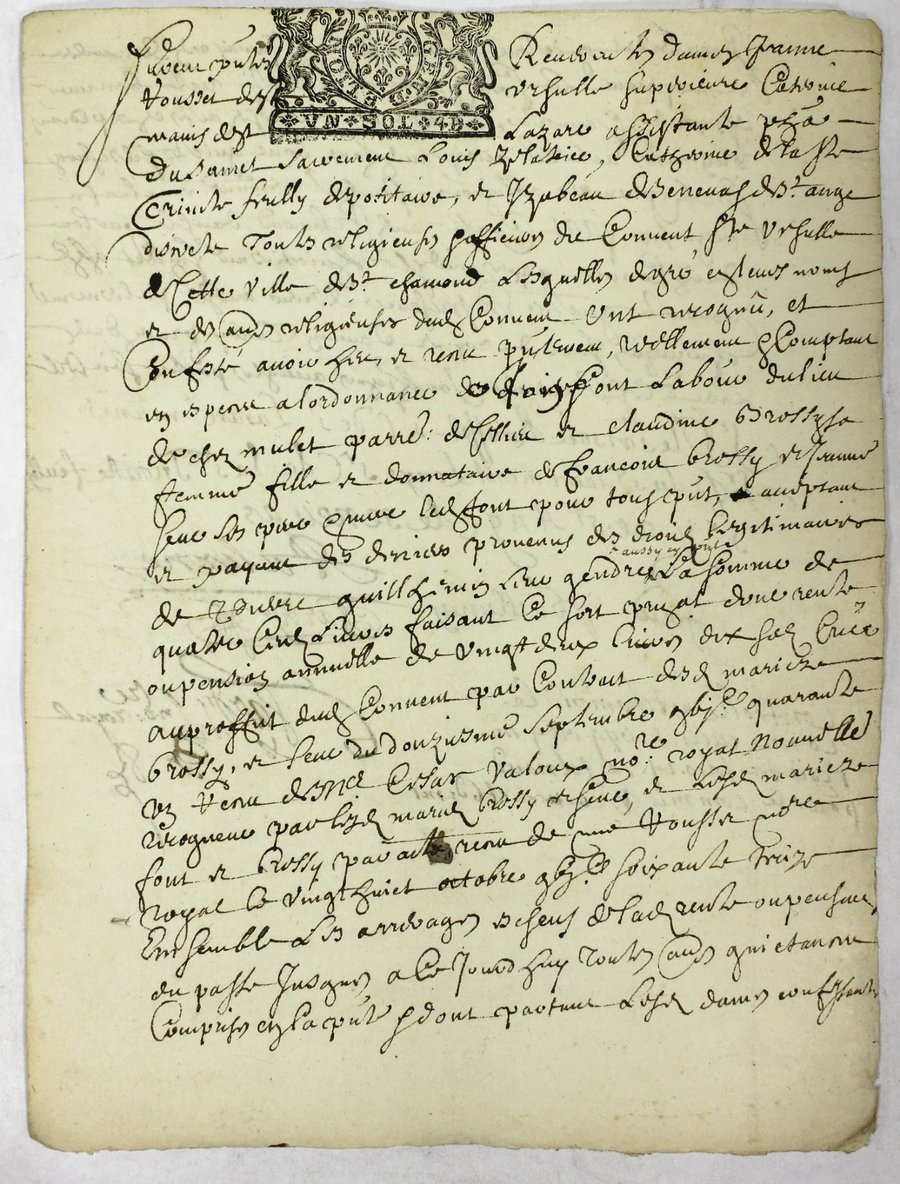 GE DE LION
VN SOL 4 D
Reverentes dames Jeanne
Rousset des Ursulle superieure Caterine
Lazare assistante
du St Sacrement Louis zelatrice, Catherine de la Ste
Trinite feully depositaire, et Izabeau de St ange
discrete Toutes religieuses professes du Convent Ste Ursulle
de Cette ville de St chamond Lesquelles de gré et leurs noms
et des autres religieuses dud Convent ont recognu, et
Confessé avoir heu et receu pntement, reellement et Comptant
en espece a lordonnance de font Labour du lieu
de chez mulet parre: de Cellieu et claudine Brossy sa
femme fille et donnataire de françois brossy et Jeanne
seue ses pere et mere led font pour tous pnt, acceptant
et payant des deniers provenus des droits legitimaires
aussy cy pnt
de guilhemin leur gendre La somme de
quatre Cents Livres faisant Le sort pnpal dune rente
ou pension annuelle de vingt deux livres dix sols Creée
au proffit dud Convent par Contract desd mariez
brossy, et seue du douziesme septembre gbjc quarante
un receu de Me Cesar Valoux nore royal Nouvelle
recogneue par lesd mariez brossy et seue, et Lesd mariez
font et brossy par acte receu de me Rousset nore
royal Le vingt huict octobre gbjc soixante treize
Ensemble Les arrerages escheus de lad rente ou pension
du passé Jusques a Ce Jourdhuy Toutes autres quictances
Comprises en La pnte et dont partant Lesd dames confessant